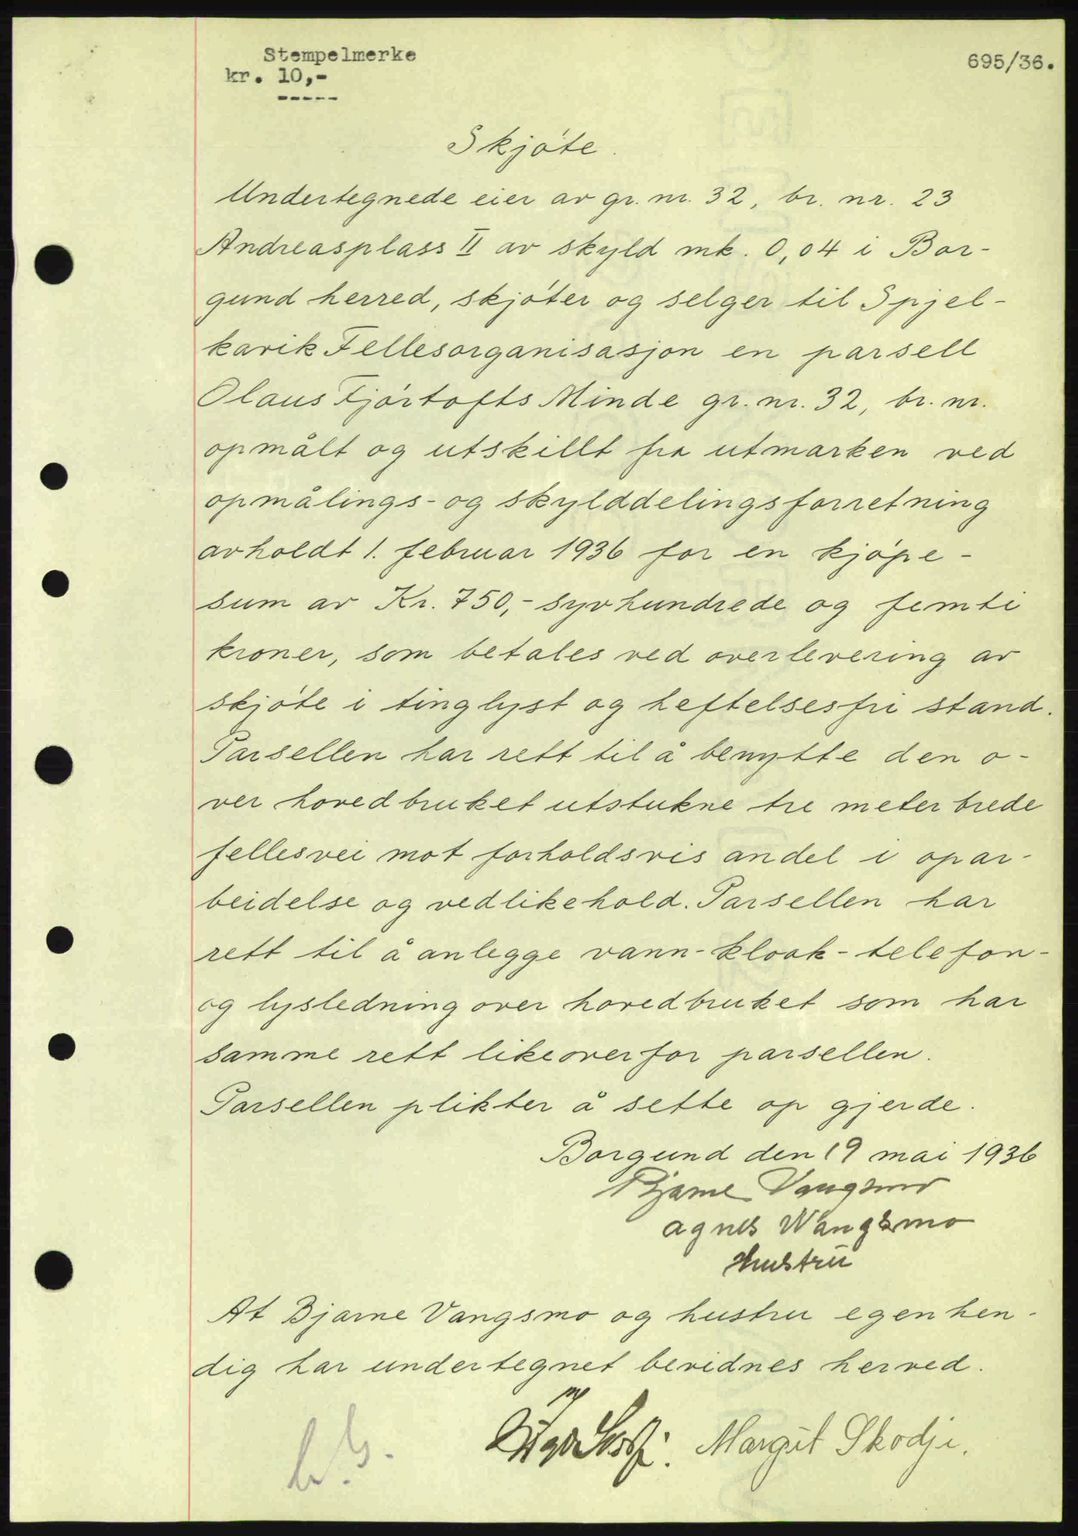 Stempelmerke
kr. 10,-
-----
695/36.
Skjøte.
Undertegnede eier av gr. nr. 32, br. nr. 23
Andreasplass II av skyld mk. 0,04 i Bor-
gund herred, skjøter og selger til Spjel-
kavik Fellesorganisasjon en parsell
Olaus Fjørtofts Minde gr. nr. 32, br. nr.
opmålt og utskillt fra utmarken ved
opmålings- og skylddelingsforretning
avholdt 1. februar 1936 for en kjøpe-
sum av Kr. 750,- syvhundrede og femti
kroner, som betales ved overlevering av
skjøte i tinglyst og heftelsesfri stand.
Parsellen har rett til å benytte den o-
ver hovedbruket utstukne tre meter brede
fellesvei mot forholdsvis andel i opar-
beidelse og vedlikehold. Parsellen har
rett til å anlegge vann- kloak- telefon-
og lysledning over hovedbruket som har
samme rett likeoverfor parsellen.
Parsellen plikter å sette op gjerde.
Borgund den 19 mai 1936
Bjarne Vangsmo
Agnes Wangsmo
Hustru
At Bjarne Vangsmo og hustru egenhen-
dig har undertegnet bevidnes herved.
Margit Skodje.